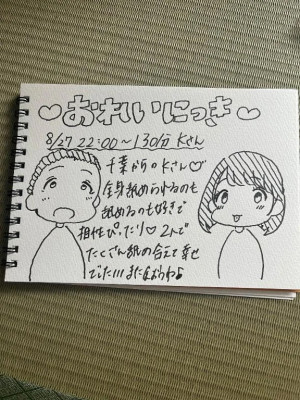 ♡おれいにっき♡
8/27 22:00〜130分 Kさん
千葉からのKさん♡
全身舐められるのも
舐めるのも好きで
相性ぴったり♡2人で
たくさん舐め合えて幸せ
でした!!!また会おうね♪